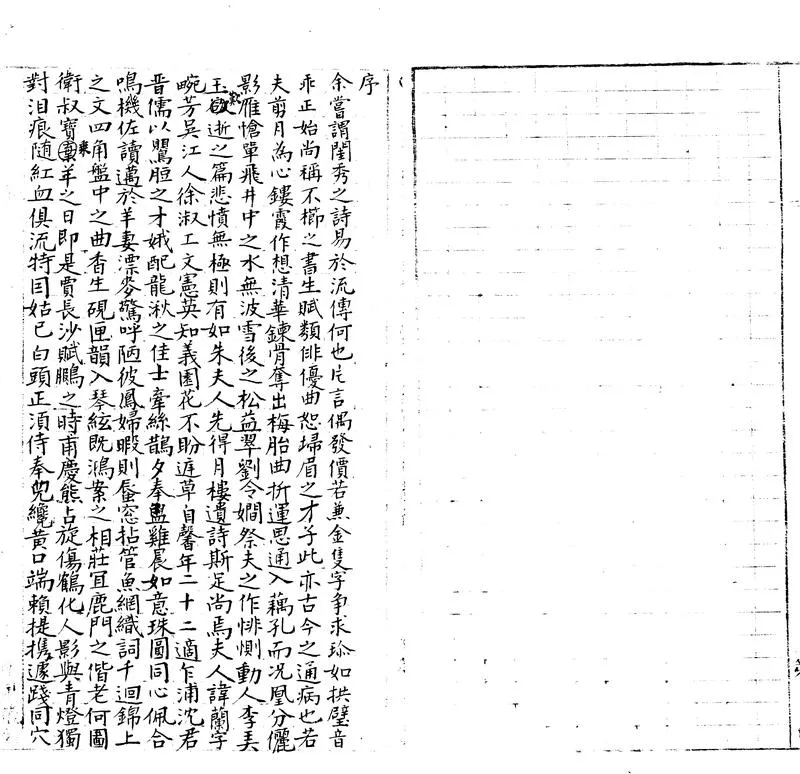 序
余嘗謂閨秀之詩易於流傳何也片言偶發價若兼金隻字爭求珍如拱璧音
乖正始尚稱不櫛之書生賦類俳優曲恕埽眉之才子此亦古今之通病也若
夫剪月為心鏤霞作想清華鍊骨奪出梅胎曲折運思通入藕孔而况凰分儷
影雁愴單飛井中之水無波雪後之松益翠劉令嫺祭夫之作悱惻動人李玉
歎逝之篇悲憤無極則有如朱夫人先得月樓遺詩斯足尚焉夫人諱蘭字
畹芳吳江人徐淑工文憲英知義園花不盼庭草自馨年二十二適乍浦沈君
晋儒以鸎脰之才娥配龍湫之佳士牽絲鵲夕奉盥雞晨如意珠圓同心佩合
鳴機佐讀邁於羊妻漂麥驚呼陋彼鳳婦暇則蜃窓拈管魚網織詞千迴錦上
之文四角盤中之曲香生硯匣韻入琴絃既鴻案之相莊宜鹿門之偕老何圖
衛叔寶乘羊之日即是賈長沙賦鵩之時甫慶熊占旋傷鶴化人影與青燈獨
對泪痕随紅血俱流特目姑已白頭正湏侍奉兒纔黃口端賴提携遽踐同穴